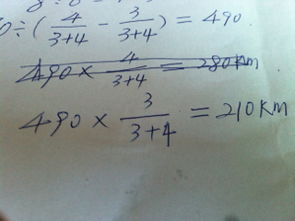 0÷(4/3+4 - 3/3+4) = 490
490 × 4/3+4 = 280km
490 × 3/3+4 = 210KM